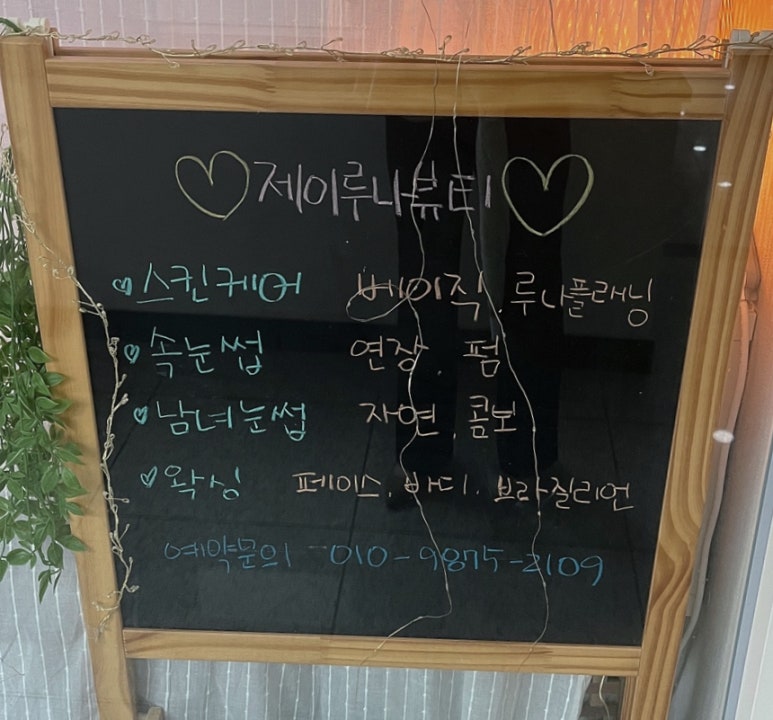 ♡제이루나뷰티♡
♡스킨케어 베이직, 루나플래닝
♡속눈썹 연장, 펌
♡남녀눈썹 자연, 콤보
♡왁싱 페이스, 바디, 브라질리언
예약문의 -010-9875-2109